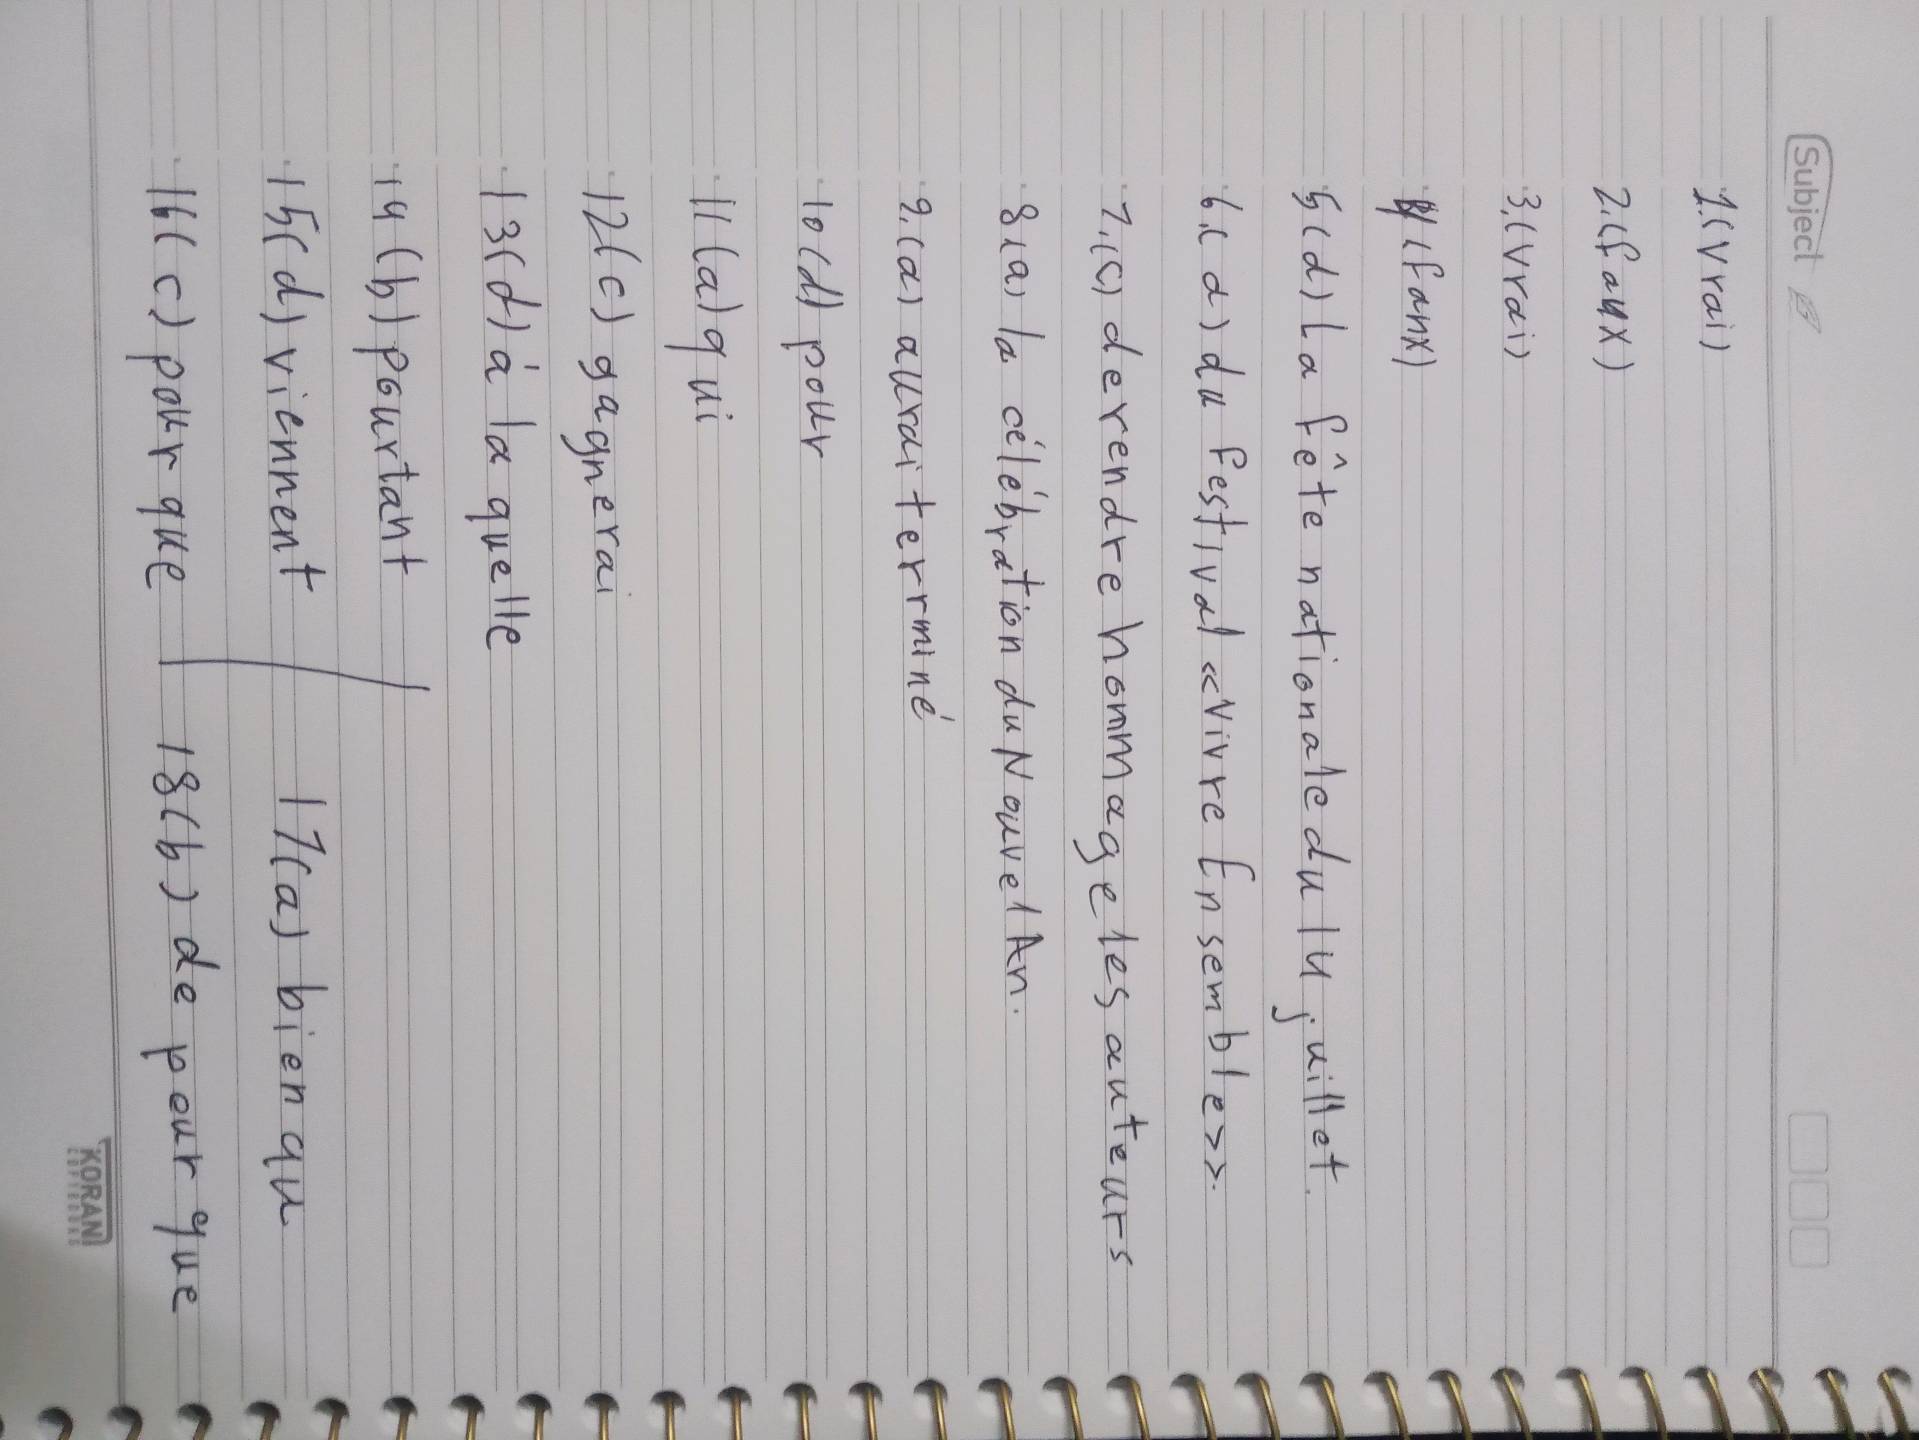 Subject
1.(vrai)
2.(faux)
3.(vrai)
4(faux)
5(d) La fête nationale du 14 juillet.
6.(d) du festival «Vivre Ensemble».
7.(c) de rendre hommage les auteurs
8(a) la célébration du Nouvel An.
9.(a) aurai terrminé
10(d) pour
11(a) qui
12(c) gagnerai
13(d) à la quelle
14(b) pourtant
15(d) viennent
16(c) pour que
17(a) bien qu
18(b) de peur que
KORAN
COPYBOOKS